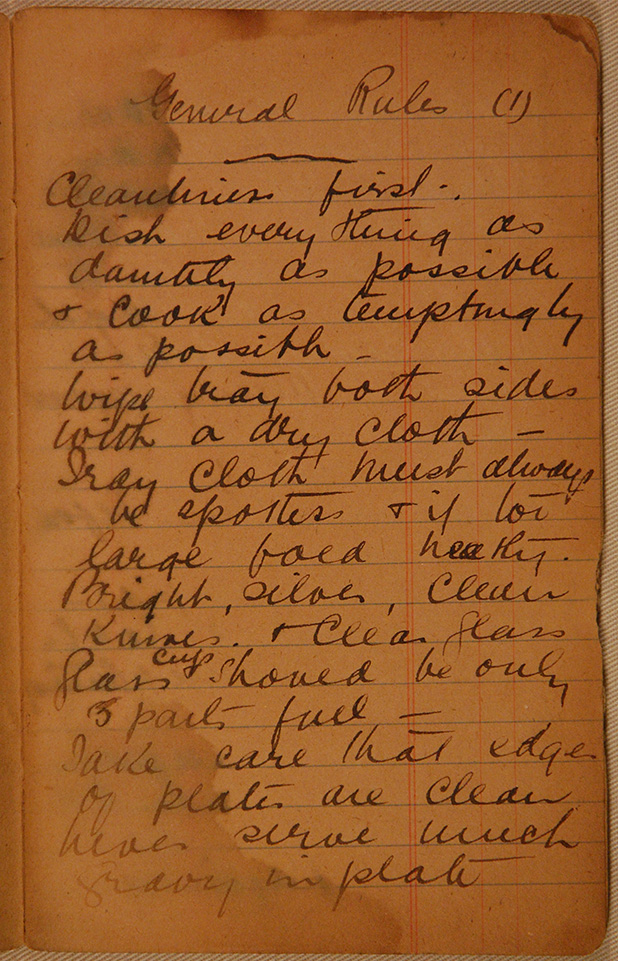 General Rules (1)
Cleanliness first -.
Dish everything as
daintily as possible
& cook as temptingly
as possible -
Wipe tray both sides
with a dry cloth -
Tray cloth must always
be spotless & if too
large foed neatly.
Bright, silver, clean
Knives. & Clear glass
glass cups shoued be only
3 parts fuel -
Take care that edges
of plates are clean
never serve much
gravy in plate